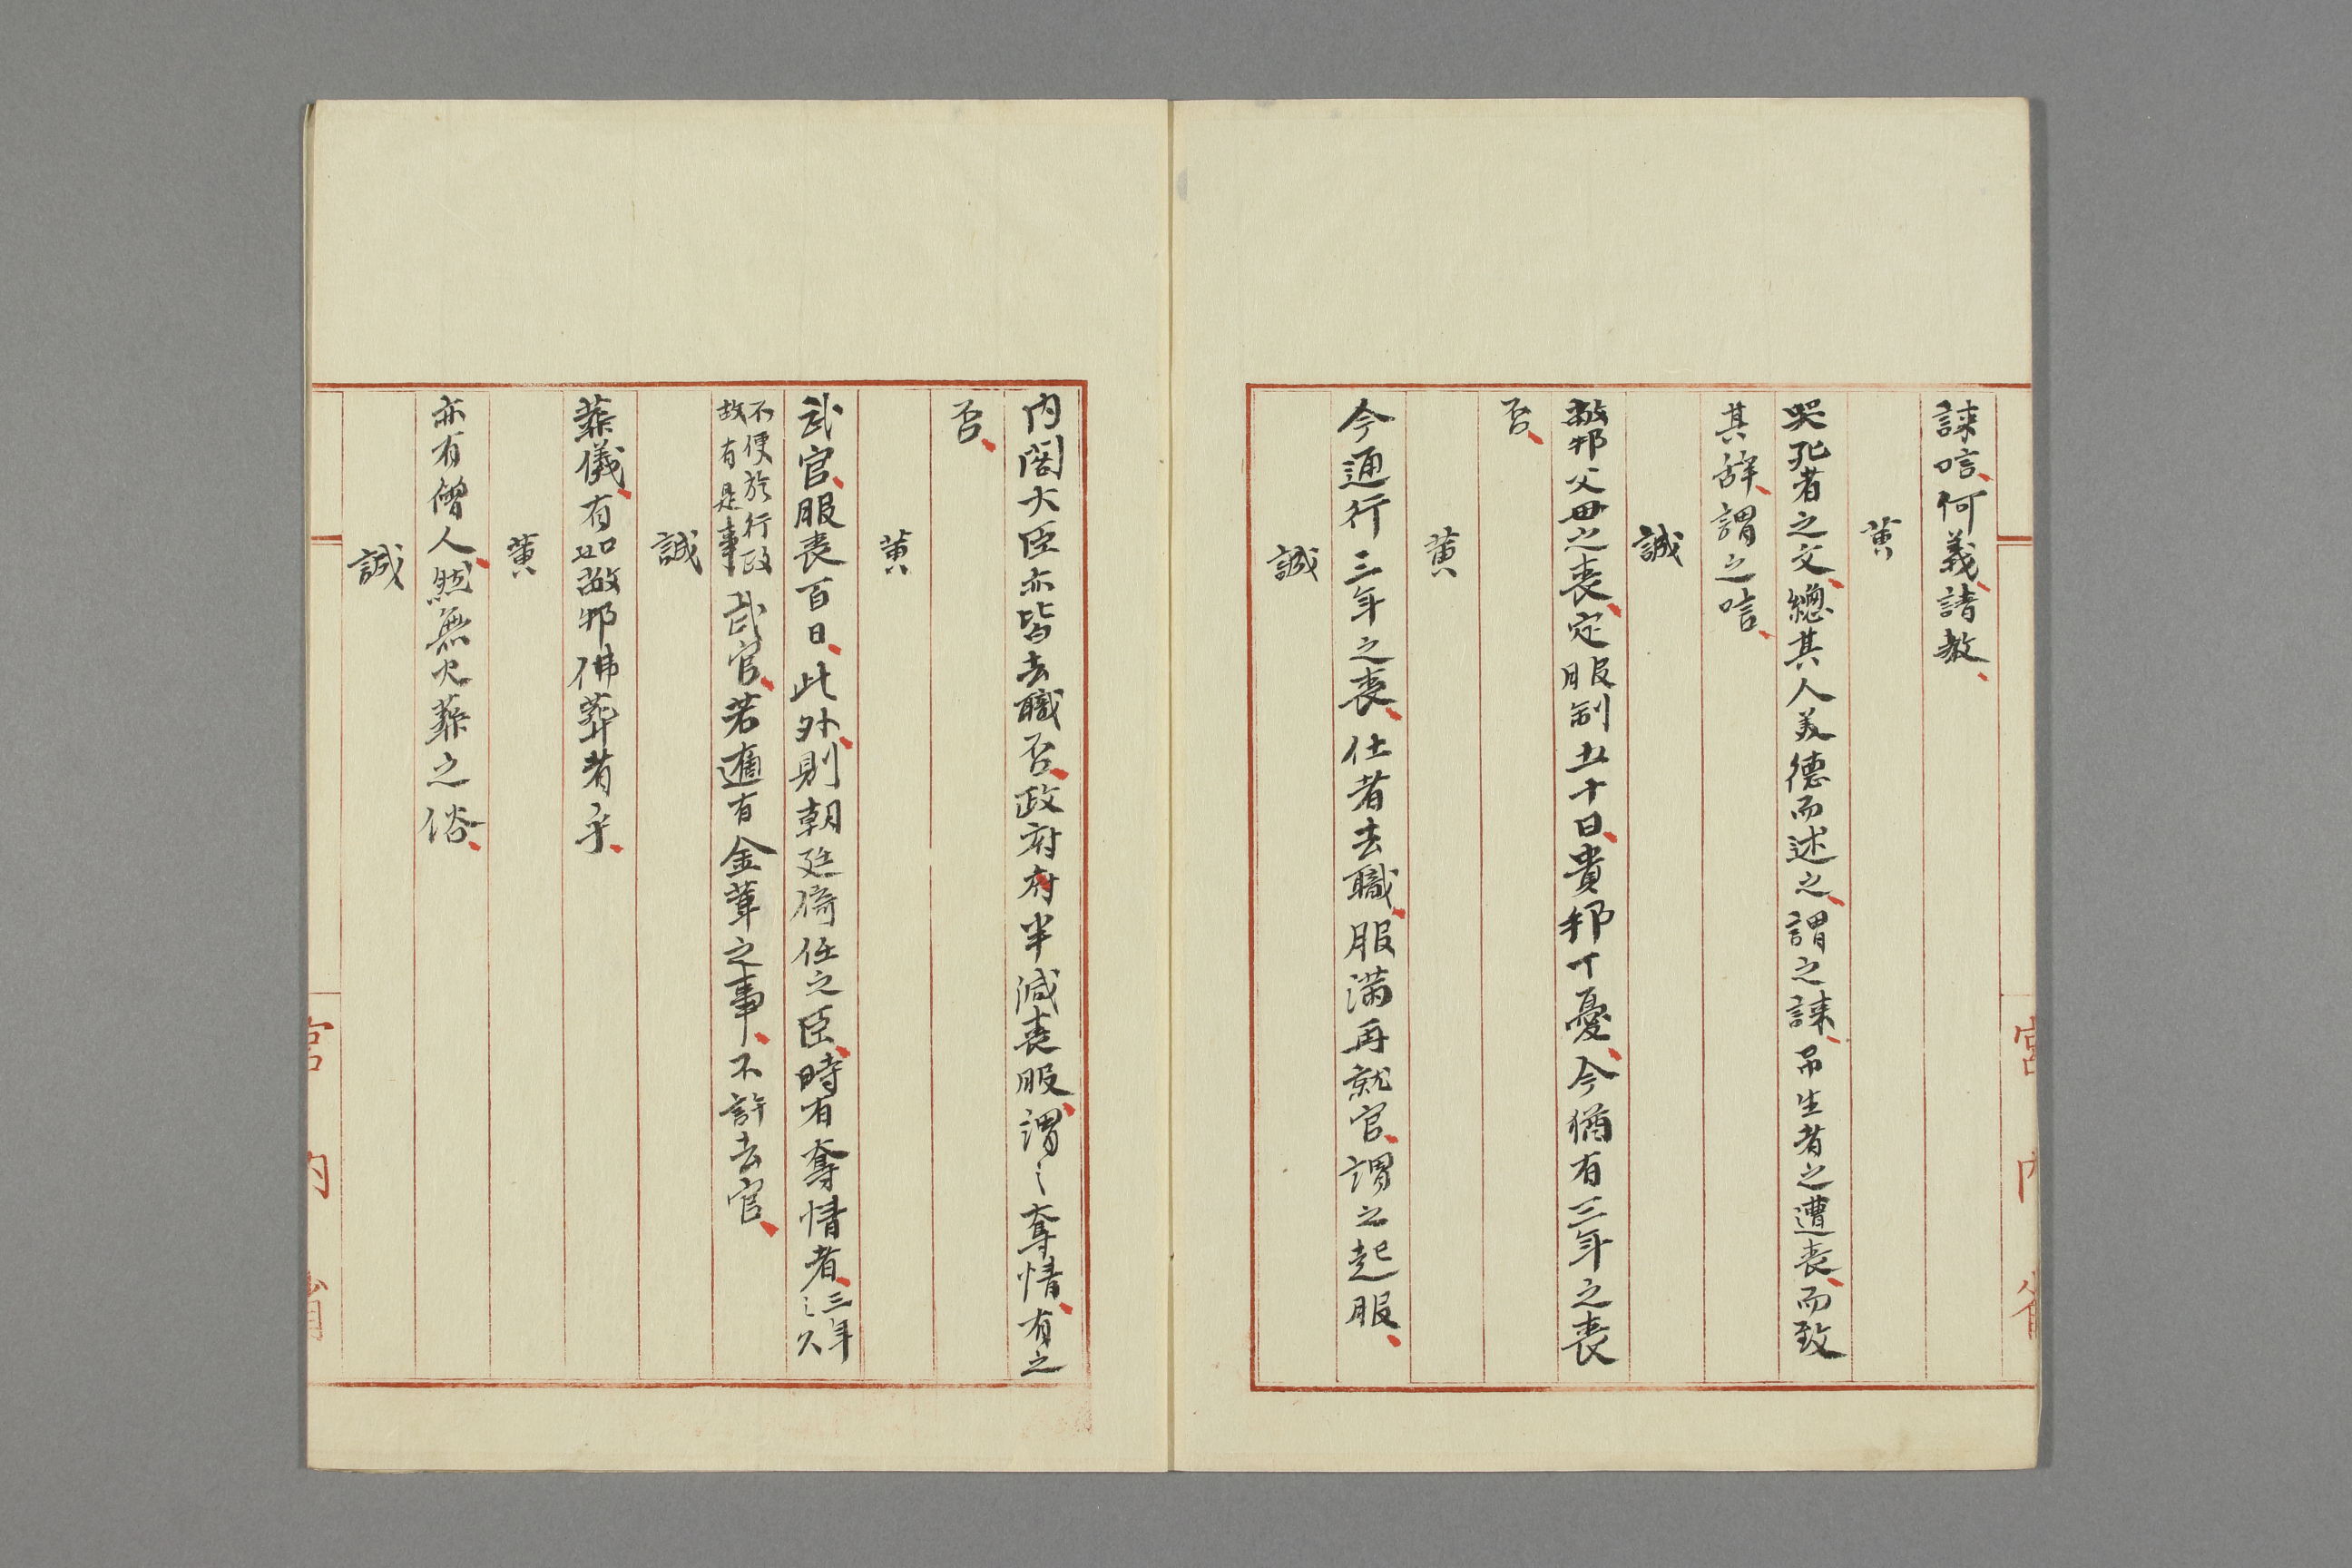 誄唁、何義、請教、
黄
哭死者之文、總其人美德而述之、謂之誄、吊生者之遭喪、而致
其辞、謂之唁、
誠
敝邦父母之喪、定服制五十日、貴邦丁憂、今猶有三年之喪
否、
黄
今通行三年之喪、仕者去職、服滿再就官、謂之起服、
誠
内閣大臣亦皆去職否、政府府半減喪服、謂之奪情、有之
否、
黄
武官、服喪百日、此外、則朝廷倚任之臣、時有奪情者、三年之久
不便於行政故有是事武官、若適有金革之事、不許去官、
誠
葬儀、有如敝邦佛葬者乎、
黄
亦有僧人、然無火葬之俗、
誠
宮内省
宮内省